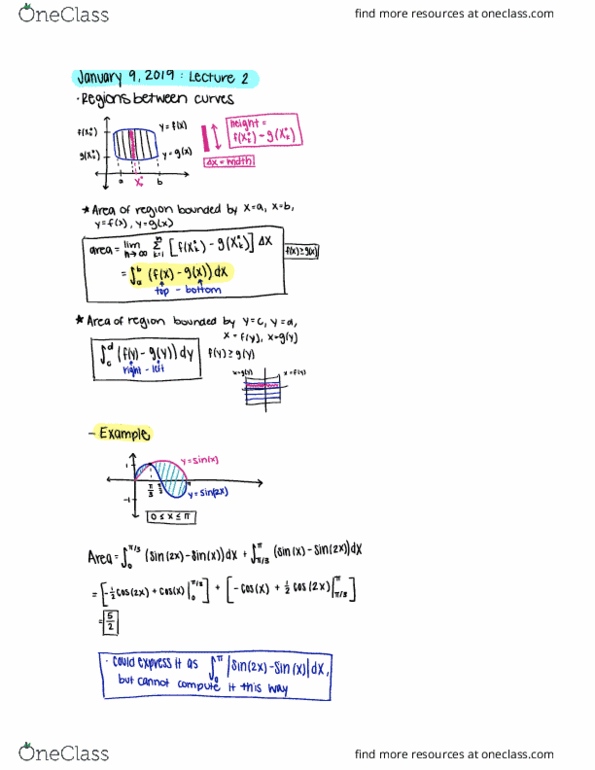 OneClass
find more resources at oneclass.com
January 9, 2019 : Lecture 2
· Regions between curves
f(Xₖ*)
g(Xₖ*)
y=f(x)
y=g(x)
a Xₖ* b
height =
f(Xₖ*) - g(Xₖ*)
Δx = width
* Area of region bounded by x=a, x=b,
y=f(x), y=g(x)
area = lim n→∞ Σ k=1 n [f(Xₖ*) - g(Xₖ*)] Δx
f(x)≥g(x)
= ∫ₐᵇ (f(x) - g(x)) dx
top - bottom
* Area of region bounded by y=c, y=d,
x=f(y), x=g(y)
∫ᶜᵈ (f(y) - g(y)) dy
f(y)≥g(y)
right - left
x=g(y) x=f(y)
- Example
1
y=sin(x)
π/3 π/2 π
-1
y=sin(2x)
0≤x≤π
Area = ∫₀^π/3 (sin(2x)-sin(x))dx + ∫π/3^π (sin(x)-sin(2x))dx
= [-½cos(2x)+cos(x)|₀^π/3] + [-cos(x)+½cos(2x)|π/3^π]
= 5/2
· could express it as ∫₀^π |sin(2x)-sin(x)|dx,
but cannot compute it this way
OneClass
find more resources at oneclass.com